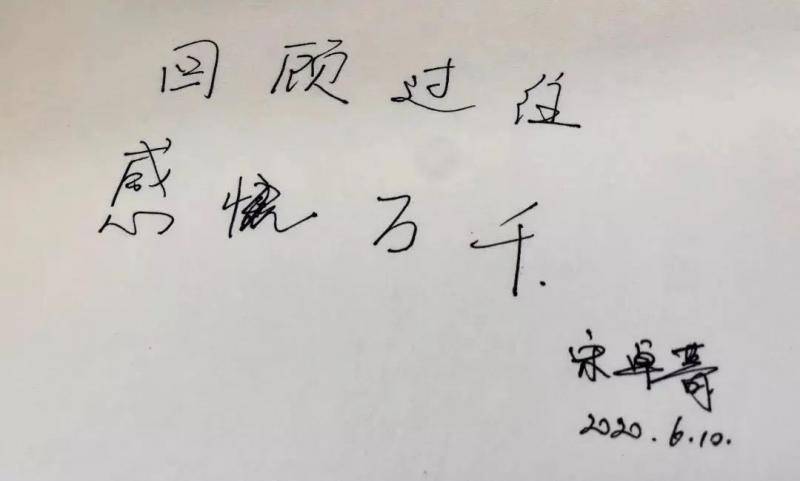 回顾过往
感慨万千.
宋卓
2020.6.10.